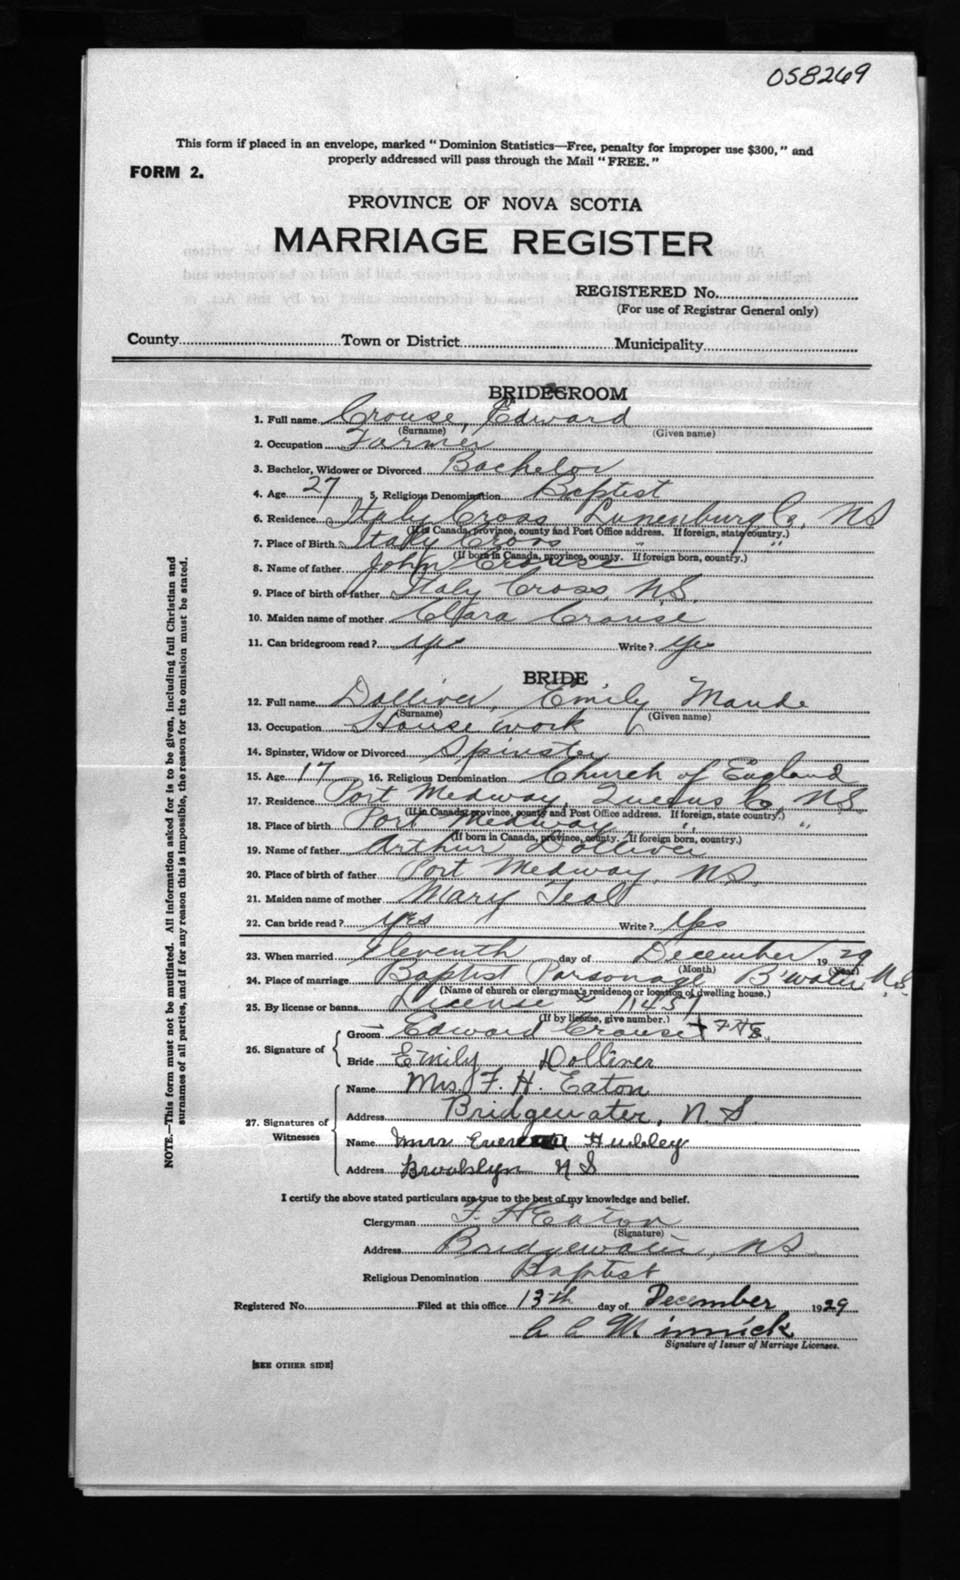 058269
This form if placed in an envelope, marked "Dominion Statistics—Free, penalty for improper use $300," and
properly addressed will pass through the Mail "FREE."
FORM 2.
PROVINCE OF NOVA SCOTIA
MARRIAGE REGISTER
REGISTERED No.
(For use of Registrar General only)
County Town or District Municipality
BRIDEGROOM
1. Full name Crouse, Edward
(Surname) (Given name)
2. Occupation Farmer
3. Bachelor, Widower or Divorced Bachelor
4. Age 27 5. Religious Denomination Baptist
6. Residence Italy Cross Lunenburg Co, NS
(If in Canada, province, county and Post Office address. If foreign, state country.)
7. Place of Birth Italy Cross " "
(If born in Canada, province, county. If foreign born, country.)
8. Name of father John Crouse
9. Place of birth of father Italy Cross, N.S.
10. Maiden name of mother Clara Crouse
11. Can bridegroom read? yes Write? yes
BRIDE
12. Full name Dolliver, Emily Maude
(Surname) (Given name)
13. Occupation House work
14. Spinster, Widow or Divorced Spinster
15. Age 17 16. Religious Denomination Church of England
17. Residence Port Medway, Queens Co, NS
(If in Canada, province, county and Post Office address. If foreign, state country.)
18. Place of birth Port Medway " "
(If born in Canada, province, county. If foreign born, country.)
19. Name of father Arthur Dolliver
20. Place of birth of father Port Medway, N.S.
21. Maiden name of mother Mary Teal
22. Can bride read? yes Write? yes
23. When married Eleventh day of December 1929
(Month) (Year)
24. Place of marriage Baptist Parsonage B'water N.S.
(Name of church or clergyman's residence or location of dwelling house.)
25. By license or banns License
(If by license, give number.)
26. Signature of
Groom Edward Crouse
Bride Emily Dolliver
27. Signatures of Witnesses
Name Mrs F. H. Eaton
Address Bridgewater, N.S.
Name Mrs Hubley
Address Brooklyn N S
I certify the above stated particulars are true to the best of my knowledge and belief.
Clergyman F. H Eaton
(Signature)
Address Bridgewater, N.S.
Religious Denomination Baptist
Registered No. Filed at this office 13th day of December 1929
Signature of Issuer of Marriage Licenses.
[SEE OTHER SIDE]
NOTE.—This form must not be mutilated. All information asked for is to be given, including full Christian and
surnames of all parties, and if for any reason this is impossible, the reason for the omission must be stated.